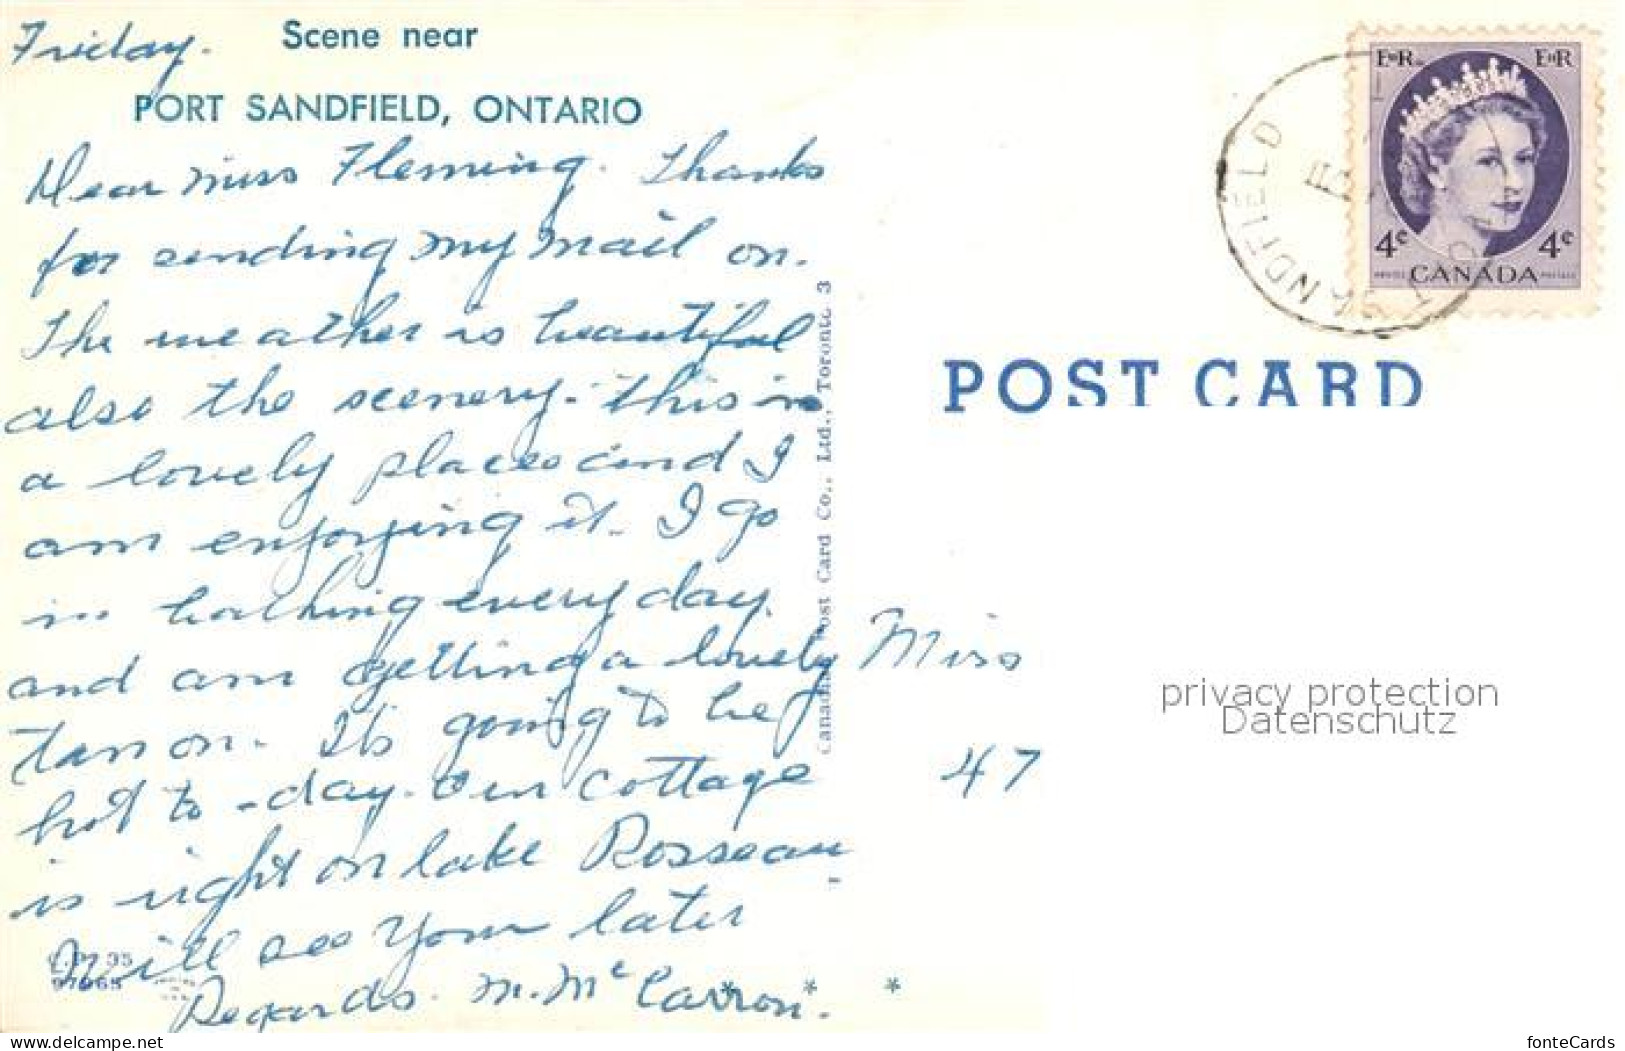 Friday. Scene near
PORT SANDFIELD, ONTARIO
Dear Miss Fleming. Thanks
for sending my mail on.
The weather is beautiful
also the scenery. This is
a lovely place and I
am enjoying it. I go
in bathing every day.
and am getting a lovely
tan on. It's going to be
hot to-day. Our cottage
is right on lake Rosseau
Will see you later
Regards. M. McCarron.
* * *
Canadian Post Card Co., Ltd., Toronto 3
SANDFIELD
E II R E II R
4¢ 4¢
CANADA
POST CARD
Miss
47
privacy protection
Datenschutz
www.delcampe.net
fonteCards